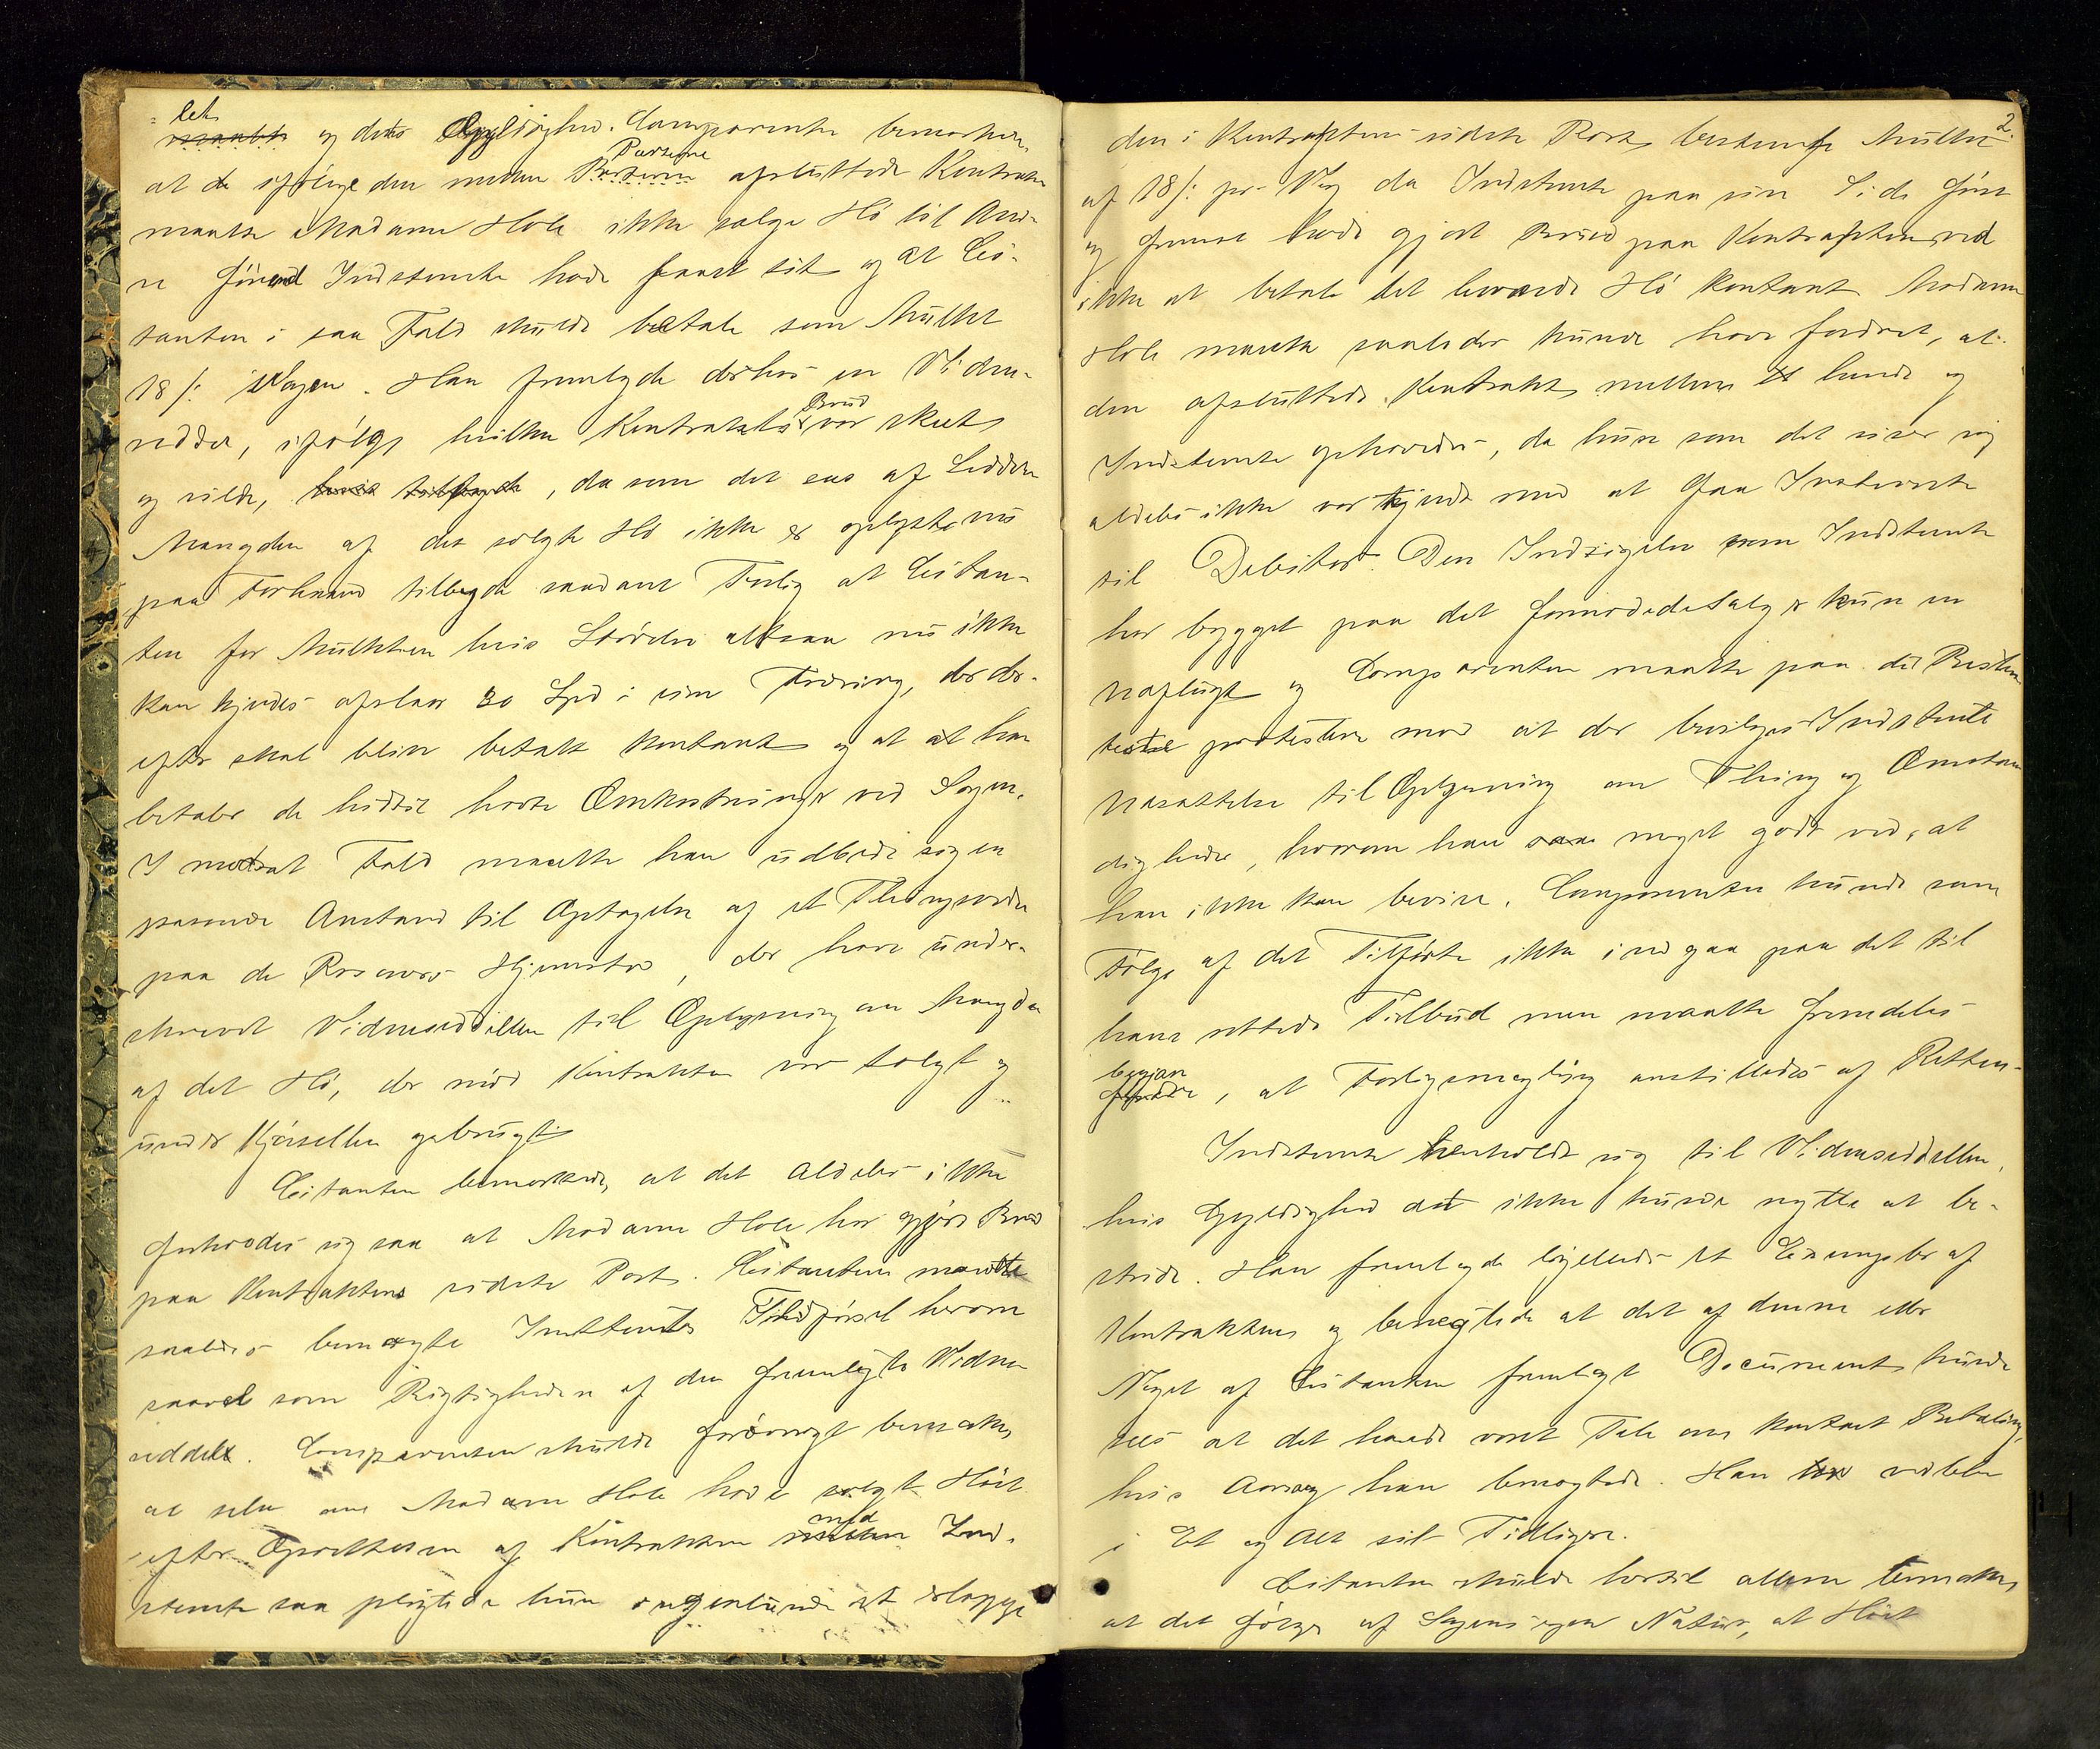 let
og dets Gyldighed. Comparenten bemærkede,
at de ifølge den mellem Parterne afsluttede Kontrakt
maatte Madame Hole ikke sælge Hö til And-
re förend Indstevnte havde faaet sit og at Ci-
tanten i saa Fald skulde betale som Mulkt
18 /: Vogen. Han fremlagde derhos en Vidne-
seddel, ifølge hvilken Kontrakts Brud var skeet
og vilde, da som det sees af Seddelen
Mængden af det solgte Hö ikke er oplyst nu
paa Forhaand tilbyde saadant Forlig at Citan-
ten for Mulkten hvis Störrelse altsaa nu ikke
kan kjendes afslaar 20 Spd i sin Fordring, der der-
efter skal blive betalt kontant og at at han
betaler de hidtil havte Omkostninger ved Sagen.
I modsat Fald maatte han udbede sig en
passende Anstand til Optagelse af et Thingsvidne
paa de Hjemsted, der have under-
skrevet Vidneseddelen til Oplysning om Mængden
af det Hö, der mod Kontrakten var solgt og
under Kjörselen opbrugt.
Citanten bemærkede, at det aldeles ikke
forholdes sig saa at Madame Hole har gjort Brud
paa Kontraktens sidste Post. Citanten maatte
saaledes benægte Indstevntes Tilförsel herom
saavel som Rigtigheden af den fremlagte Vidne
seddel. Comparenten skulde forövrigt bemærke,
at selv om Madam Hole havde solgt Höet
efter Oprettelsen af Kontrakten med Ind-
stevnte saa pligtede hun ingenlunde at erlægge
2.
den i Kontraktens sidste Post bestemte Mulkt
af 18 /: pr. Vog da Indstevnte paa sin Side först
og fremst havde gjort Brud paa Kontrakten ved
ikke at betale det leverede Hö kontant. Madame
Hole maatte saaledes kunne have fordret, at
den afsluttede Kontrakt mellem hende og
Indstevnte ophævedes, da hun som det viser sig
aldeles ikke var tjent med at faa Instevnte
til Debitor. Den Indsigelse som Indstevnte
har bygget paa det formodede Salg er kun en
Udflugt og Comparenten maatte paa det Bestem
teste protestere mod at der bevilges Indstevnte
Udsættelse til Oplysning om Thing og Omstæn
digheder, hvorom han saa meget godt ved, at
han ikke kan bevise. Comparenten kunde som
Fölge af det Tilförte ikke indgaa paa det til
ham rettede Tilbud men maatte fremdeles
begjære, at Forligsmægling anstilledes af Retten.
Indstevnte henholdt sig til Vidneseddelen,
hvis Gyldighed det ikke kunde nytte at be-
stride. Han fremlagde ligeledes et Exemplar af
Kontrakten og benegtede at det af denne eller
Noget af Citanten fremlagt Document kunde
sees at det havde været Tale om kontant Betaling,
hvis Aarsag han benægtede. Han vedblev
i Et og Alt sit Tidligere.
Citanten skulde hertil allene bemærke,
at det fölger af Sagens egen Natur, at Höet